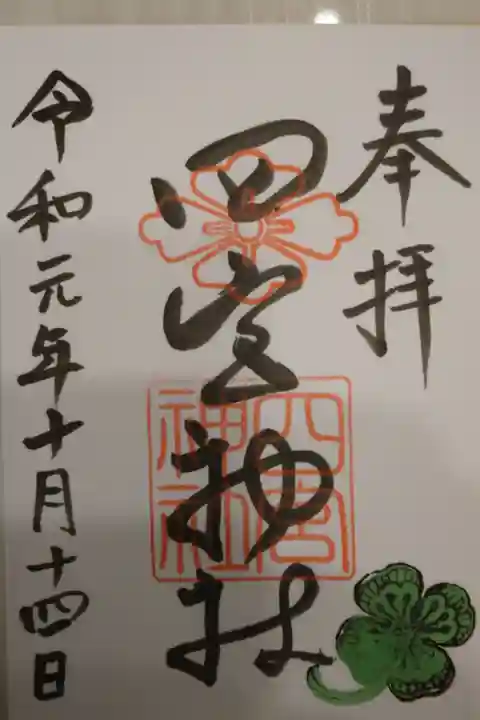 奉拝
四宮神社
四宮神社
令和元年十月十四日